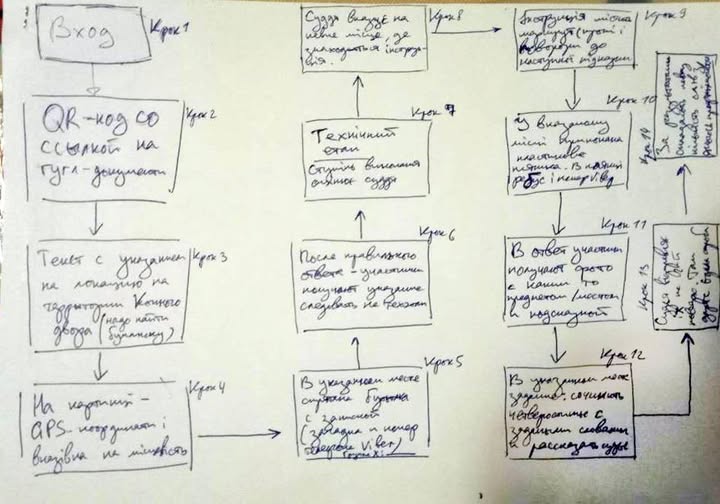 Вход
Крок 1
QR-код со
ссылкой на
гугл-документы
Крок 2
Текст с указанием
на локацию на
территории Конного
двора (надо найти
бумажку)
Крок 3
На картинці -
GPS-координати і
вказівка на місцевість
Крок 4
В указанном месте
спрятана бутылка
с запиской
(загадка и номер
телефона Viber)
Крок 5
После правильного
ответа - участники
получают указание
следовать на техэтап
Крок 6
Технічний
етап
Ступінь виконання
оцінює суддя
Крок 7
Суддя вказує на
певне місце, де
знаходиться інструк-
ція.
Крок 8
Інструкція містить
маршрут (кроки і
повороти до
наступної підказки
Крок 9
У вказаному
місці
пластикова
пляшка. В ній
ребус і номер Vib
Крок 10
В ответ участники
получают фото
с каким то
предметом/местом
и подсказкой
Крок 11
В указанном месте
задание - сочинить
четверостишие с
заданными словами
и рассказать судье
Крок 12
Суддя
не
Крок 13
За
складають
кількість слів з
Крок 14